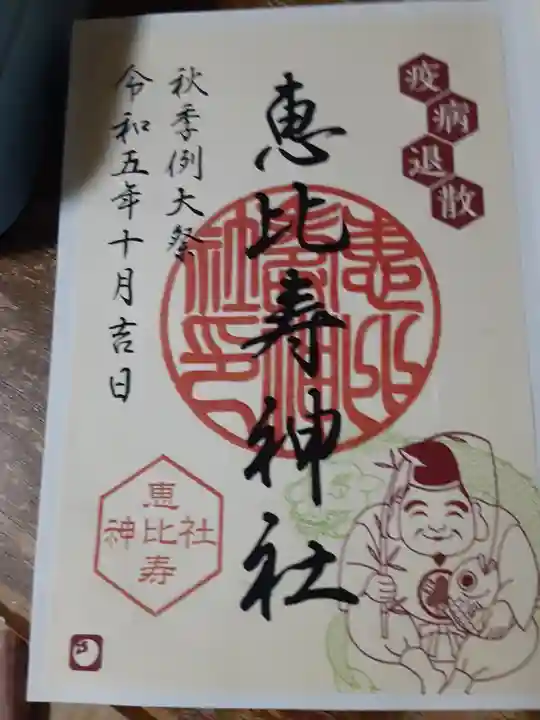 疫病退散
恵比寿神社
秋季例大祭
令和五年十月吉日
恵比寿神社印
恵比寿
神比社